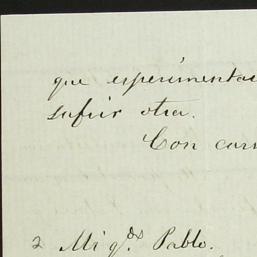 que esperimenta
sufrir otra.
Con cari
2 Mi q.do Pablo.